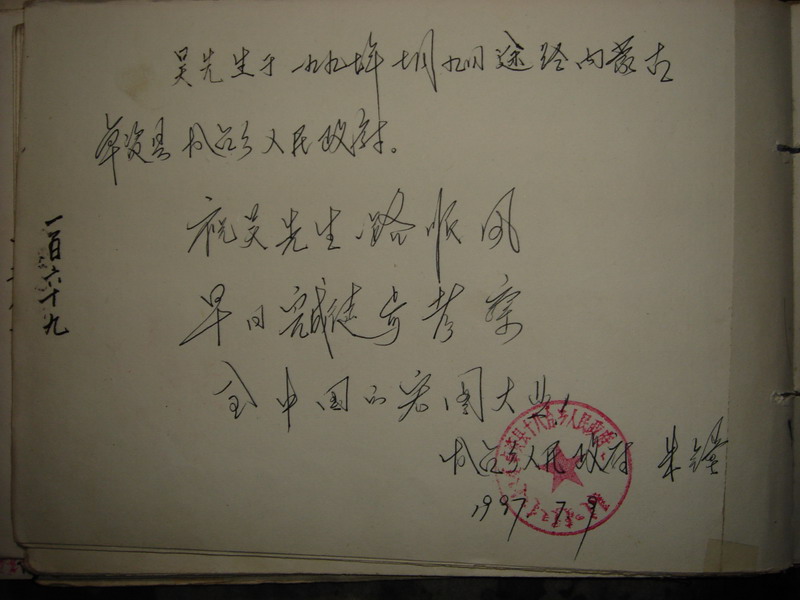 吴先生于一九九七年七月九日途经内蒙古
卓资县十八台乡人民政府。
祝吴先生一路顺风
早日完成徒步考察
全中国的宏图大业!
十八台乡人民政府 朱
1997.7.9
一百六十九
卓资县十八台乡人民政府